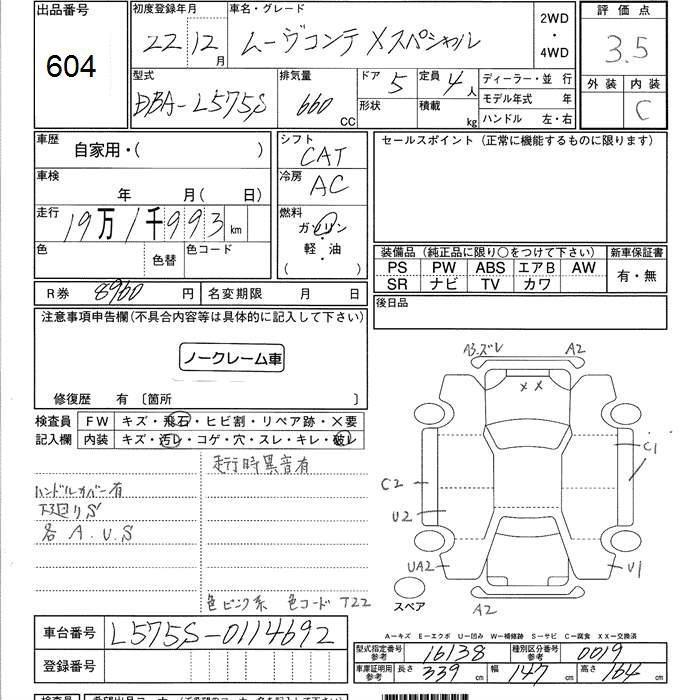 出品番号
604
初度登録年月
22 12月
車名・グレード
ムーヴコンテ Xスペシャル
2WD
・
4WD
評価点
3.5
外装
内装
C
型式
DBA-L575S
排気量
660 CC
ドア 5
形状
定員 4人
積載 kg
ディーラー・並行
モデル年式 年
ハンドル 左・右
車歴
自家用・( )
シフト
CAT
セールスポイント(正常に機能するものに限ります)
車検
年 月( 日)
冷房
AC
走行
19万1千993km
燃料
ガソリン
・
軽・油
( )
色
色替
色コード
装備品(純正品に限り○をつけて下さい)
新車保証書
PS PW ABS エアB AW
SR ナビ TV カワ
有・無
R券 8960円
名変期限 月 日
後日品
注意事項申告欄(不具合内容等は具体的に記入して下さい)
ノークレーム車
修復歴 有 〔箇所 〕
検査員
記入欄
FW キズ・飛石・ヒビ割・リペア跡・X要
内装 キズ・汚レ・コゲ・穴・スレ・キレ・破レ
走行時異音有
ハンドルカバー有
下廻りS
各A.U.S
色ピンク系 色コード T22
A3.ズレ
A2
××
C1
C2
U2
UA2
U1
A2
スペア
車台番号
L575S-0114692
登録番号
A－キズ E－エクボ U－凹み W－補修跡 S－サビ C－腐食 XX－交換済
型式指定番号
参考
16138
種別区分番号
参考
0019
車庫証明用
参考
長さ 339cm
幅 147cm
高さ 164cm
検査員
希望出品コーナー